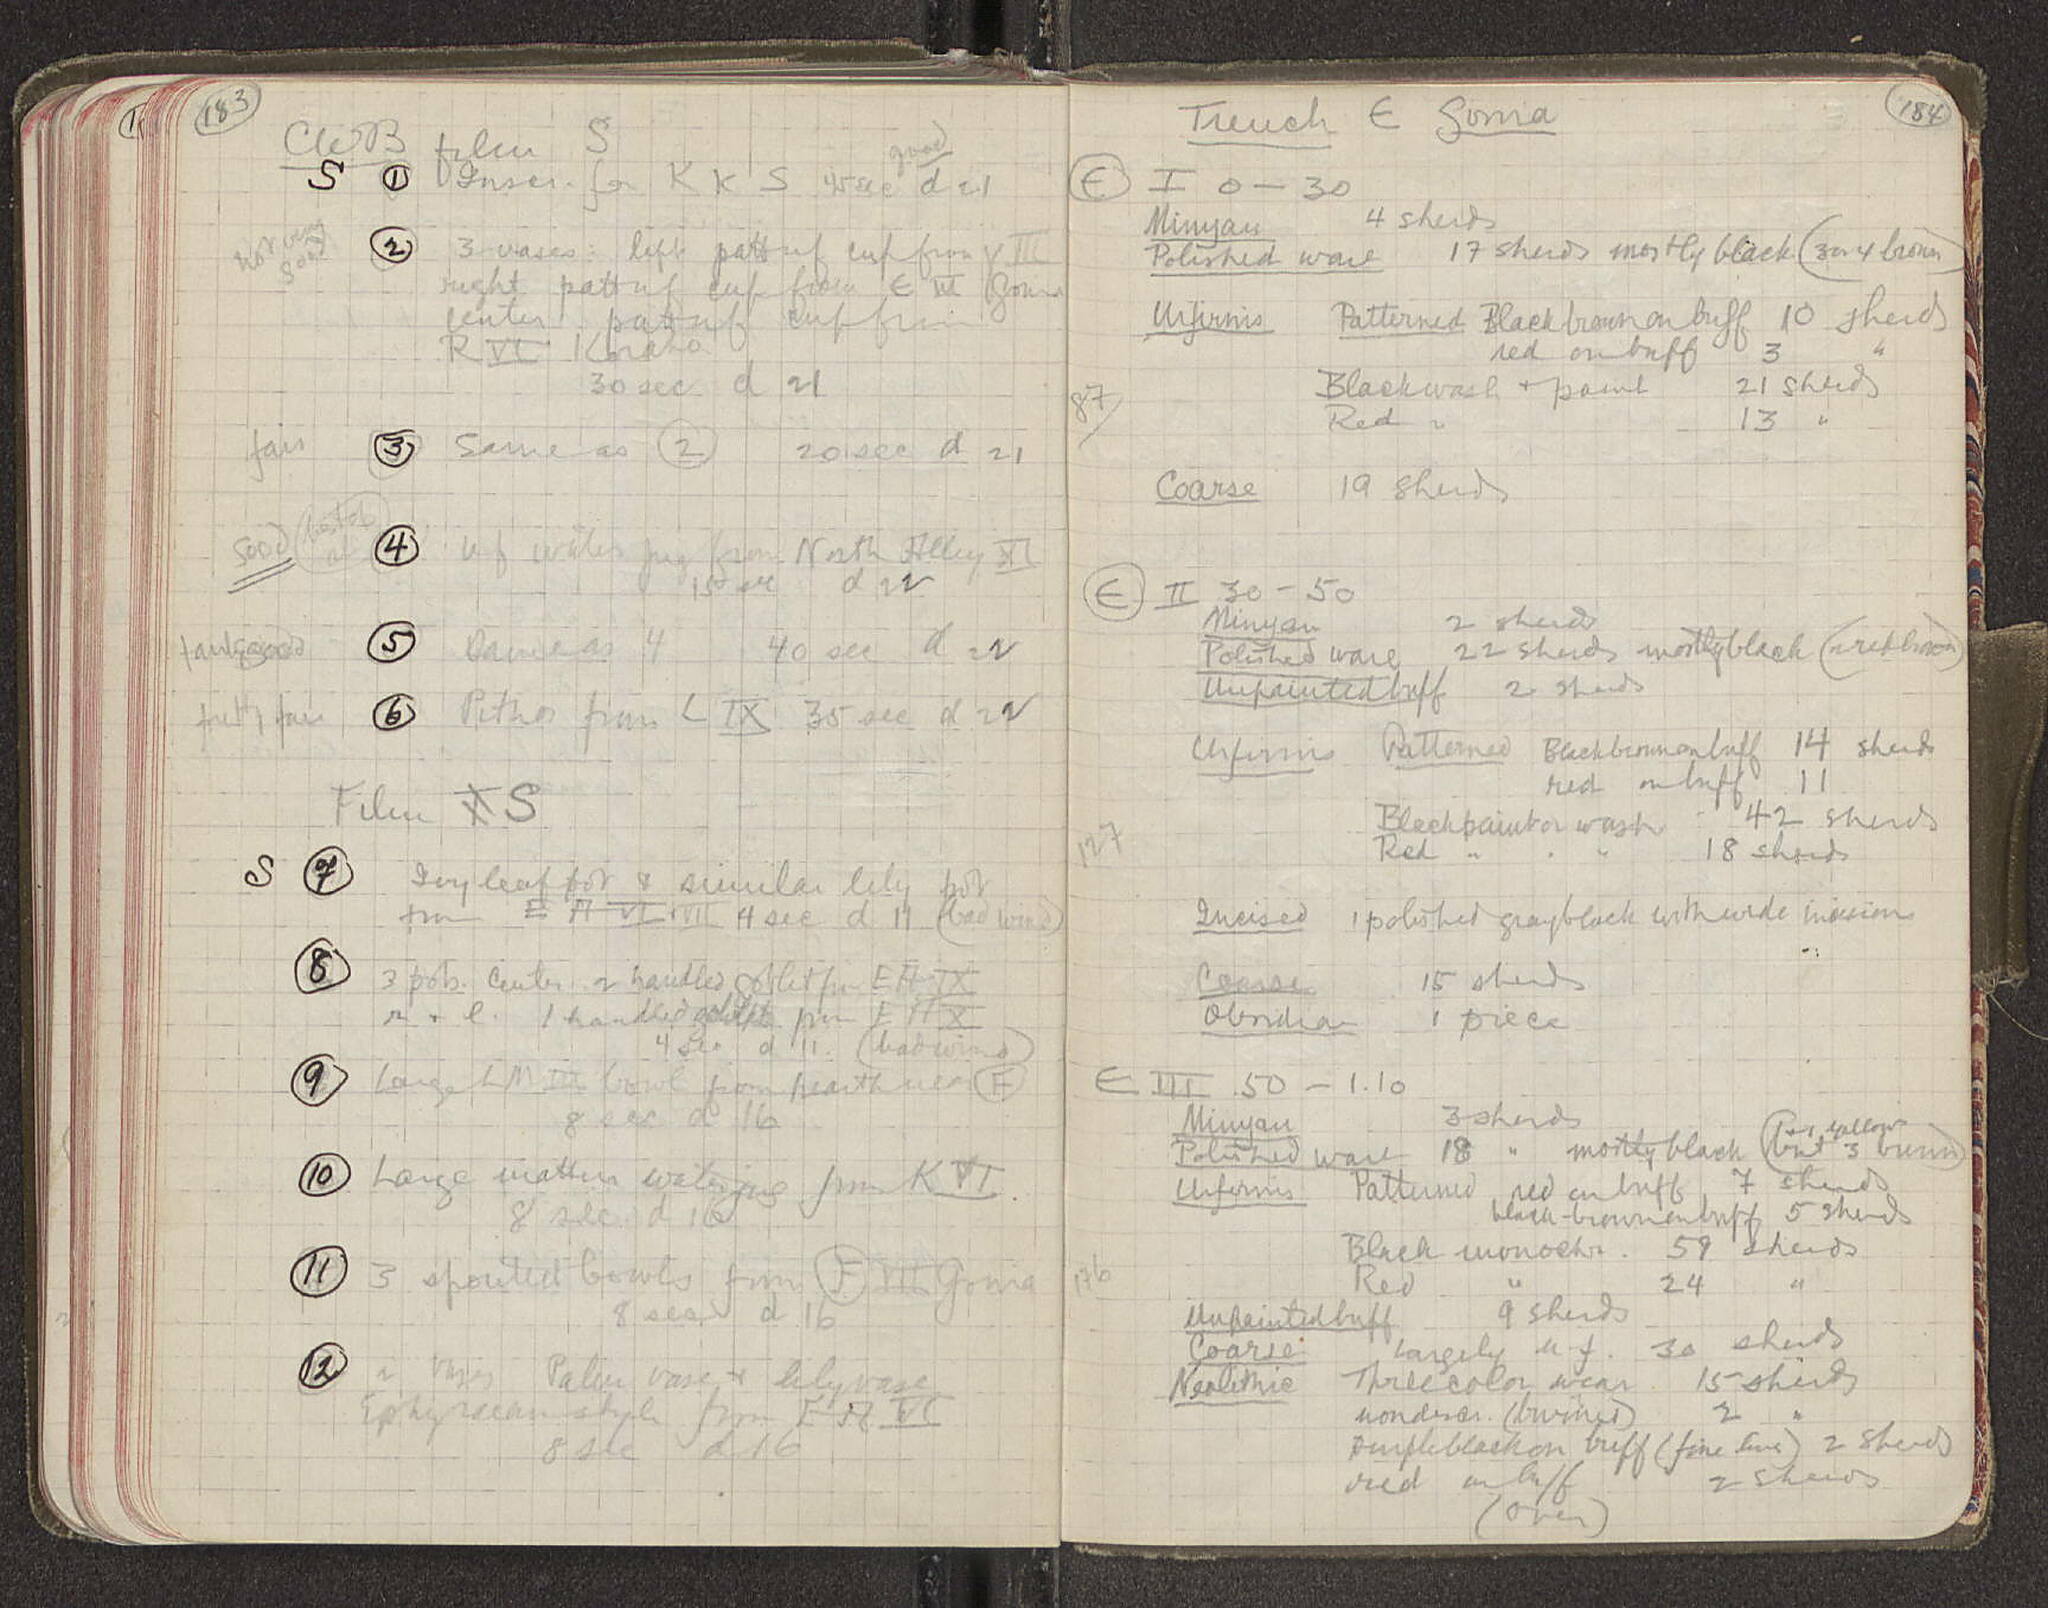 183
CWB film S
good
S 1 Inscr. for K K S 45 sec d 21
not very good
2 3 vases: left patt uf cup from Y III
right patt uf cup from E III Gonia
center patt uf cup from
R VI Korako
30 sec d 21
fair 3 Same as 2 20 sec d 21
good 4 uf water jug from North Alley XI
150 sec d 22
5 Same as 4 40 sec d 22
pretty fair 6 Pithos from L IX 35 sec d 22
Film S
S 7 Ivy leaf pot & similar lily pot
from E A VI VII 4 sec d 11 (bad wind)
8 3 pots. Center 2 handled goblet from E A IX
r + l. 1 handled goblets from E A X
4 sec d 11. (bad wind)
9 Large LM III bowl from hearth near F
8 sec d 16
10 Large matt water jug from K VI.
8 sec d 16
11 3 spouted bowls from F VII Gonia
8 sec d 16
12 2 vases Palm vase & lily vase
Ephyraean style from E A VI
8 sec d 16
184
Trench E Gonia
E I 0 – 30
Minyan 4 sherds
Polished ware 17 sherds mostly black (3 or 4 brown)
Urfirnis Patterned Black brown on buff 10 sherds
red on buff 3 "
Black wash + paint 21 sherds
87/
Red " 13 "
Coarse 19 sherds
E II 30 – 50
Minyan 2 sherds
Polished ware 22 sherds mostly black (2 red brown)
Unpainted buff 2 sherds
Urfirnis Patterned Black brown on buff 14 sherds
red on buff 11
Black paint or wash 42 sherds
127
Red " " " 18 sherds
Incised 1 polished gray black with wide incisions
Coarse 15 sherds
Obsidian 1 piece
E III .50 – 1.10
Minyan 3 sherds
Polished ware 18 " mostly black (but 3 brown + 1 yellow)
Urfirnis Patterned red on buff 7 sherds
black-brown on buff 5 sherds
Black monochr. 59 sherds
176
Red " 24 "
Unpainted buff 9 sherds
Coarse largely u f. 30 sherds
Neolithic Three color wear 15 sherds
nondescr. (burned) 2 "
purple black on buff (fine line) 2 sherds
red on buff 2 sherds
(over)